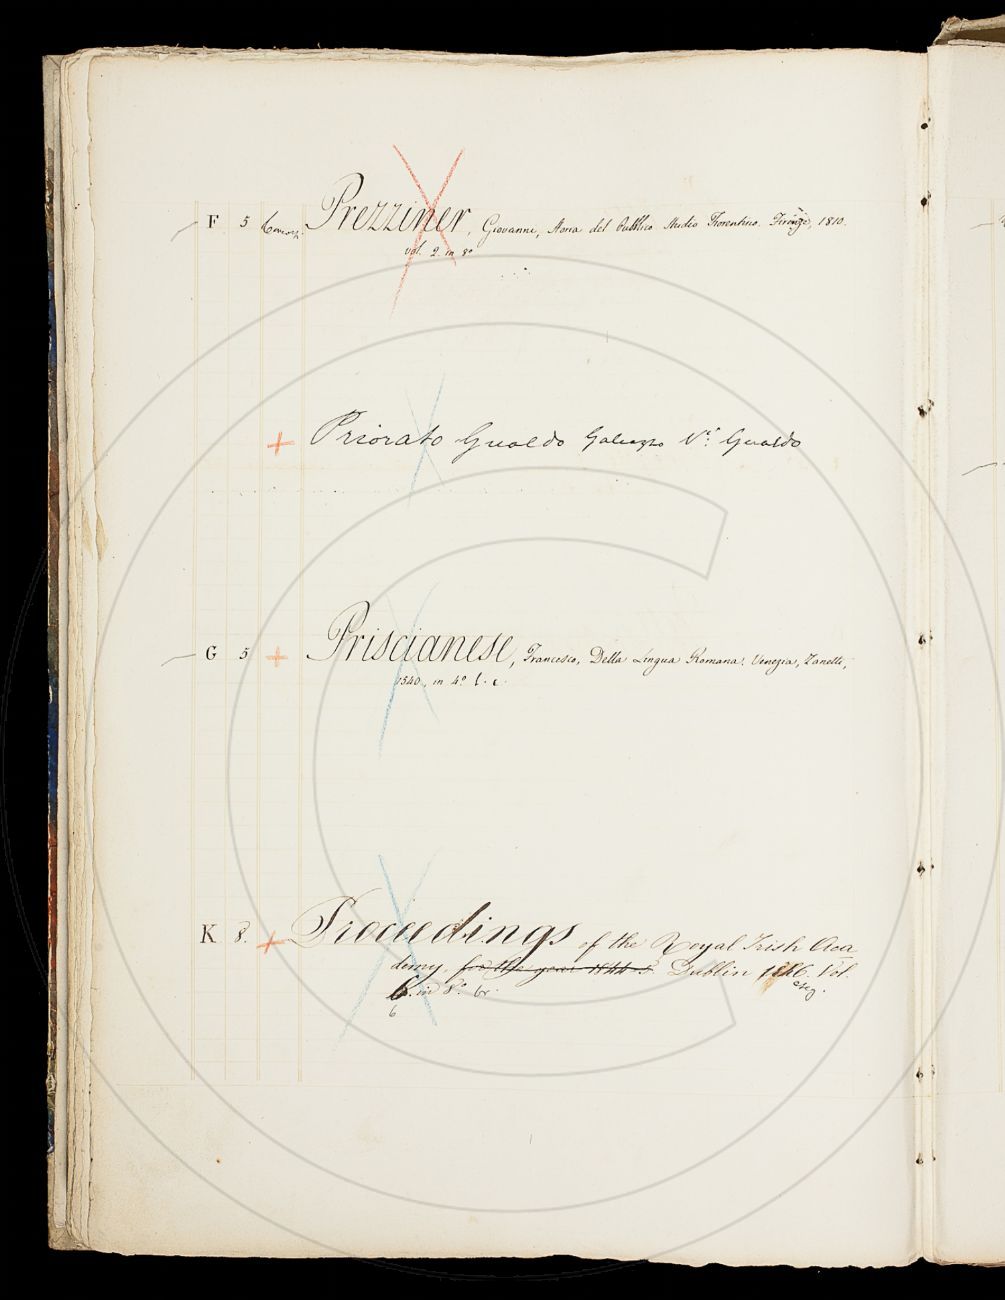 F 5 Prezziner, Giovanni, Storia del Pubblico Studio Fiorentino. Firenze, 1810.
vol. 2. in 8º
+ Priorato Gualdo Galeazzo Vº. Gualdo
G 5 + Priscianese, Francesco, Della Lingua Romana. Venezia, Zanetti,
1540, in 4º l. c.
K 8. + Proceedings of the Royal Irish Aca
demy, for the year 1844-5. Dublin 1846. Vol.
eseg.
6. in 8º br.
6